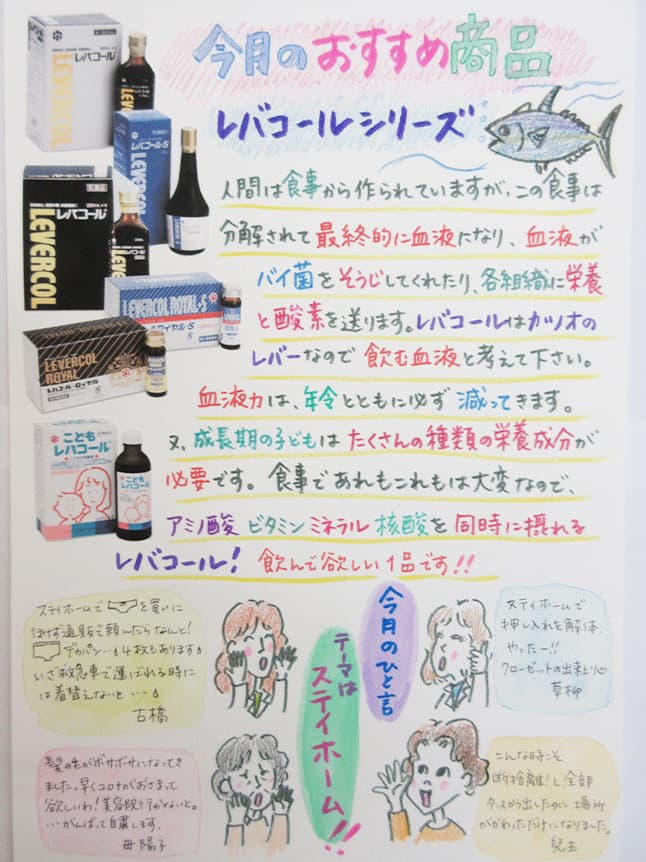 今月のおすすめ商品
レバコールシリーズ
人間は食事から作られていますが、この食事は
分解されて最終的に血液になり、血液が
バイ菌をそうじしてくれたり、各組織に栄養
と酸素を送ります。レバコールはカツオの
レバーなので飲む血液と考えて下さい。
血液力は、年令とともに必ず減ってきます。
又、成長期の子どもはたくさんの種類の栄養成分が
必要です。食事であれもこれもは大変なので、
アミノ酸 ビタミン ミネラル 核酸を同時に摂れる
レバコール! 飲んで欲しい1品です!!
レバコール
LEVERCOL
レバコール-S
LEVERCOL-S
レバコール
LEVERCOL
LEVERCOL ROYAL・S
ールロイヤル-S
LEVERCOL
ROYAL
レバコール・ロイヤル
こども
レバコール
今月のひと言
テーマは
ステイホーム!!
ステイホームで を買いに
行けず通販で頼んだらなんと!
デカパン 4枚もあります
いざ救急車で運ばれる時に
は着替えないと…
古橋
ステイホームで
押し入れを解体
やったー!!
クローゼットの出来上り
草柳
髪の毛がボサボサになってき
ました。早くコロナがおさまって
欲しいわ!美容院を行かないと。
…がんばって自粛します。
毋 陽子
こんな時こそ
断捨離!と全部
タンスから出したのに場所
がかわっただけになりました。
児玉